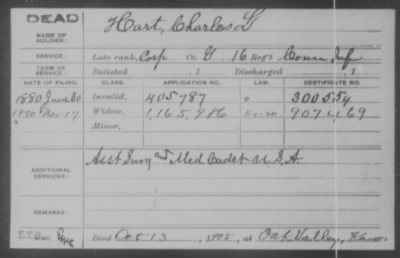 DEAD
NAME OF SOLDIER: Hart, Charles G
SERVICE: Late rank, Corp Co. G, 16 Reg't Conn Inf
TERM OF SERVICE: Enlisted , 1 Discharged , 1
DATE OF FILING. CLASS. APPLICATION NO. LAW. CERTIFICATE NO.
1880 June Invalid, 405787 300554
1920 Nov 17 Widow, 1,165,986 5-1-20 907469
Minor,
ADDITIONAL SERVICES: Asst Surg and Med Cadet U.S.A.
REMARKS:
Died Oct 13, 1905, at Oak Valley, Kans